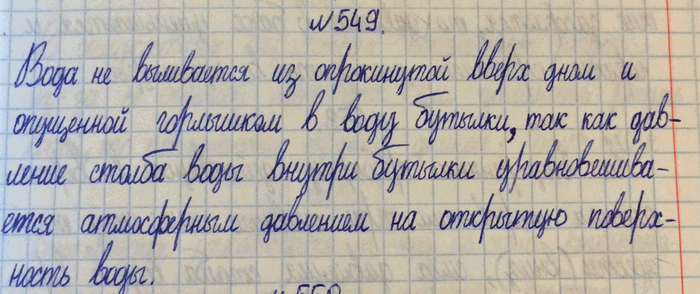 №549.
Вода не выливается из опрокинутой вверх дном и
опущенной горлышком в воду бутылки, так как дав-
ление столба воды внутри бутылки уравновешива-
ется атмосферным давлением на открытую поверх-
ность воды.